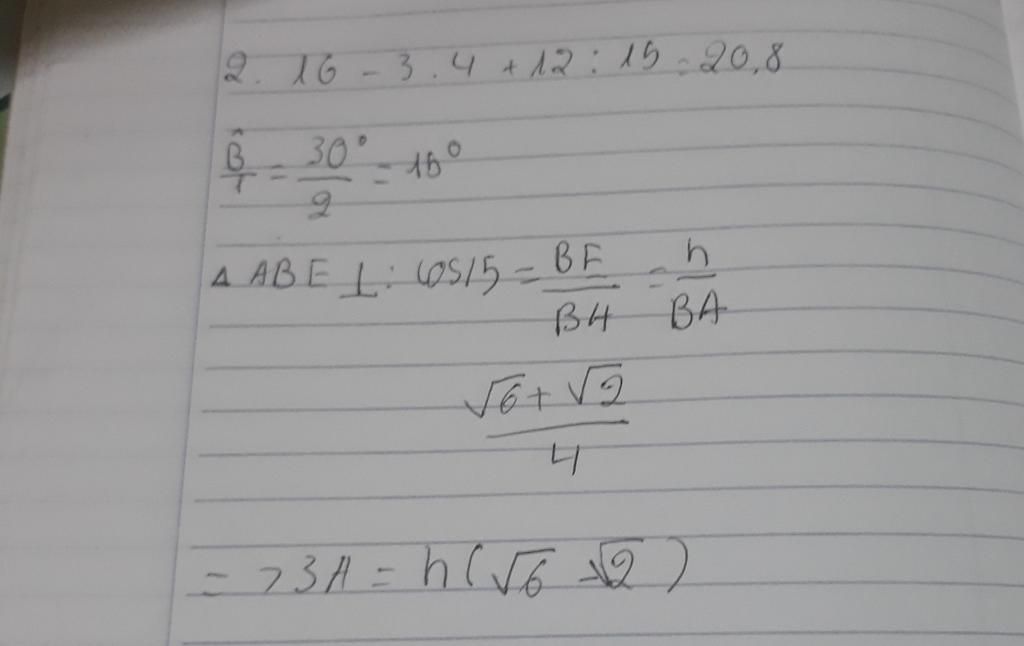 2. 16 - 3.4 + 12 : 15 = 20,8
B̂/1 = 30°/2 = 15°
Δ ABE ⊥ : cos15 = BE/BH = h/BA
(√6 + √2)/4
=> BA = h(√6 - √2)